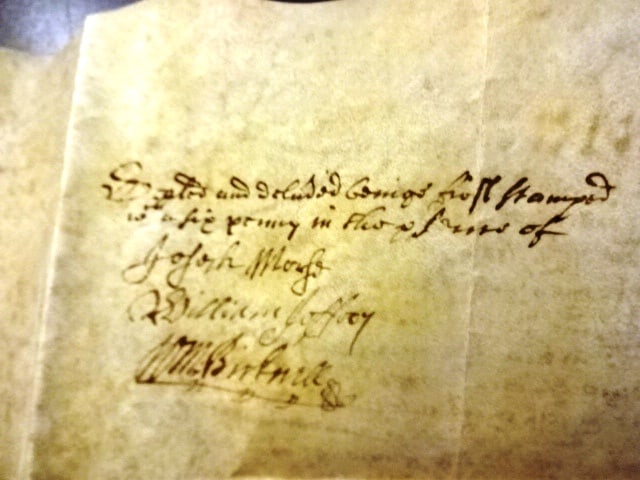 Sealed and delivᵈed beinge first stamped
wᵗʰ a six penny in the psence of
Joseph Morse
William Joffrey
Wm Bicknell